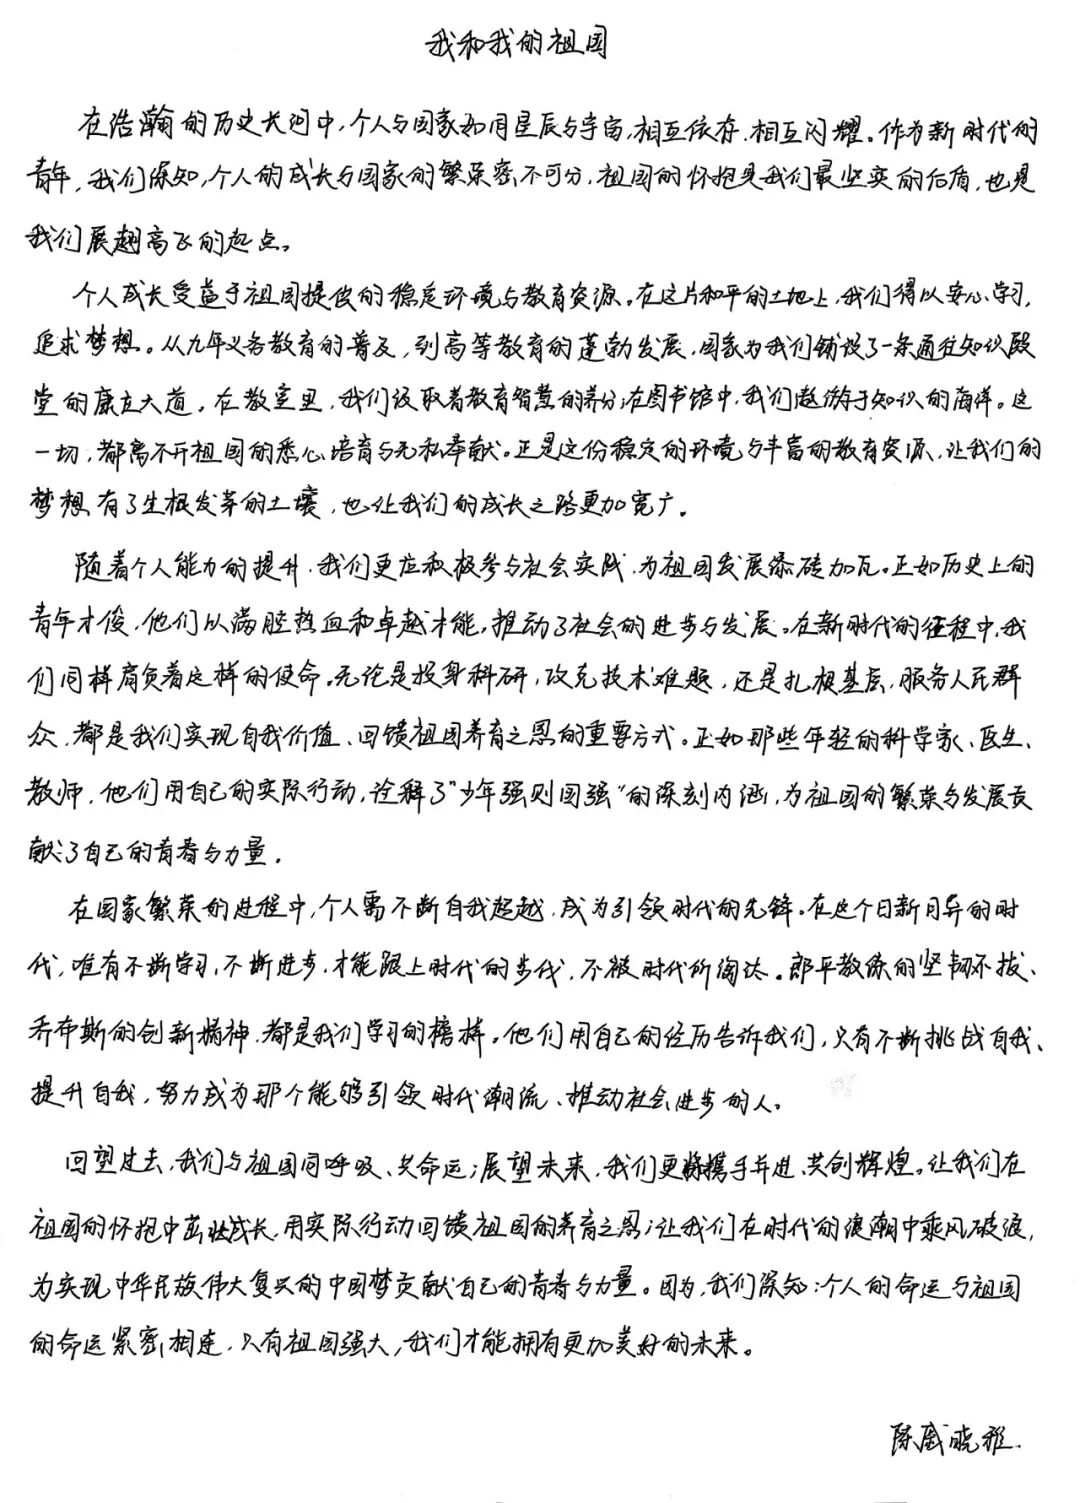 我和我的祖国
在浩瀚的历史长河中,个人与国家如同星辰与宇宙,相互依存,相互闪耀。作为新时代的
青年,我们深知,个人的成长与国家的繁荣密不可分,祖国的怀抱是我们最坚实的后盾,也是
我们展翅高飞的起点。
个人成长受益于祖国提供的稳定环境与教育资源。在这片和平的土地上,我们得以安心学习,
追求梦想。从九年义务教育的普及,到高等教育的蓬勃发展,国家为我们铺设了一条通往知识殿
堂的康庄大道。在教室里,我们汲取着教育智慧的养分;在图书馆中,我们遨游于知识的海洋。这
一切,都离不开祖国的悉心培育与无私奉献。正是这份稳定的环境与丰富的教育资源,让我们的
梦想有了生根发芽的土壤,也让我们的成长之路更加宽广。
随着个人能力的提升,我们更应积极参与社会实践,为祖国发展添砖加瓦。正如历史上的
青年才俊,他们以满腔热血和卓越才能,推动了社会的进步与发展。在新时代的征程中,我
们同样肩负着这样的使命。无论是投身科研,攻克技术难题,还是扎根基层,服务人民群
众,都是我们实现自我价值、回馈祖国养育之恩的重要方式。正如那些年轻的科学家、医生、
教师,他们用自己的实际行动,诠释了“少年强则国强”的深刻内涵,为祖国的繁荣与发展贡
献了自己的青春与力量。
在国家繁荣的进程中,个人需不断自我超越,成为引领时代的先锋。在这个日新月异的时
代,唯有不断学习,不断进步,才能跟上时代的步伐,不被时代所淘汰。郎平教练的坚韧不拔、
乔布斯的创新精神,都是我们学习的榜样。他们用自己的经历告诉我们,只有不断挑战自我、
提升自我,努力成为那个能够引领时代潮流、推动社会进步的人。
回望过去,我们与祖国同呼吸、共命运;展望未来,我们更将携手并进、共创辉煌。让我们在
祖国的怀抱中茁壮成长,用实际行动回馈祖国的养育之恩;让我们在时代的浪潮中乘风破浪,
为实现中华民族伟大复兴的中国梦贡献自己的青春与力量。因为,我们深知:个人的命运与祖国
的命运紧密相连,只有祖国强大,我们才能拥有更加美好的未来。
陈晓雅